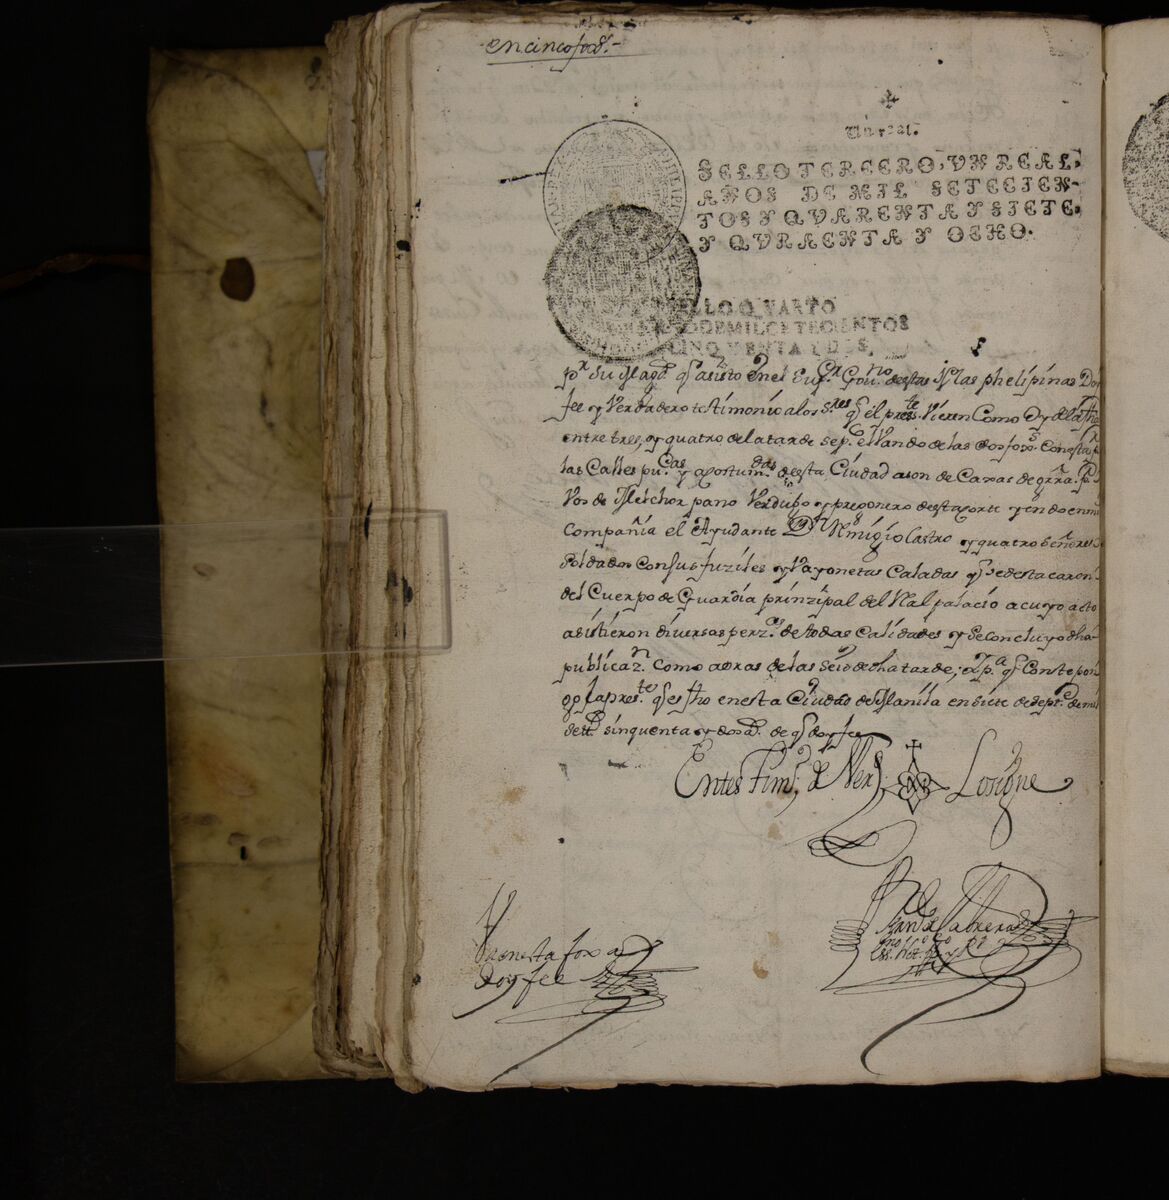 en cinco fox.s
Un real.
SELLO TERCERO, VN REAL,
AÑOS DE MIL SETECIEN-
TOS Y QVARENTA Y SIETE,
Y QVRAENTA Y OCHO.
SELLO QVARTO
DE MIL CETECIENTOS
CINQVENTA Y DOS,
p.r Su Mag.d q asisto en el Sup.or Gov.no de estas Yslas phelipinas Doy
fee y Verdadero testimonio a los s.res q el pres.te Vieren Como Oy dia
entre tres, y quatro de la tarde se p. el Vando de las dos fox.s Con esta p.r
las Calles pu.cas y acostum.das de esta Ciudad a son de Caxas de grra. p.r
Vos de Melchor pano Verdugo y pregonero de esta Corte yendo en mi
Compañia el Ayudante D.n Rmigio Castro y quatro
Soldados Con sus fuziles y Vayonetas Caladas q se destacaron
del Cuerpo de Guardia prinzipal del Ral palacio a cuyo acto
asistieron diversas perz.as de todas Calidades y se concluyo dha
publicaz.n Como a oras de las Seis de dha tarde; Y p.a q Conste pon
go la pres.te q es fho en esta Ciudad de Manila en siete de Sept.e de mil
sett.s sinquenta y dos a.s de q doy fee
Entes Fim.o de Ver.d Losigne
Va en esta foxa
Doy fee